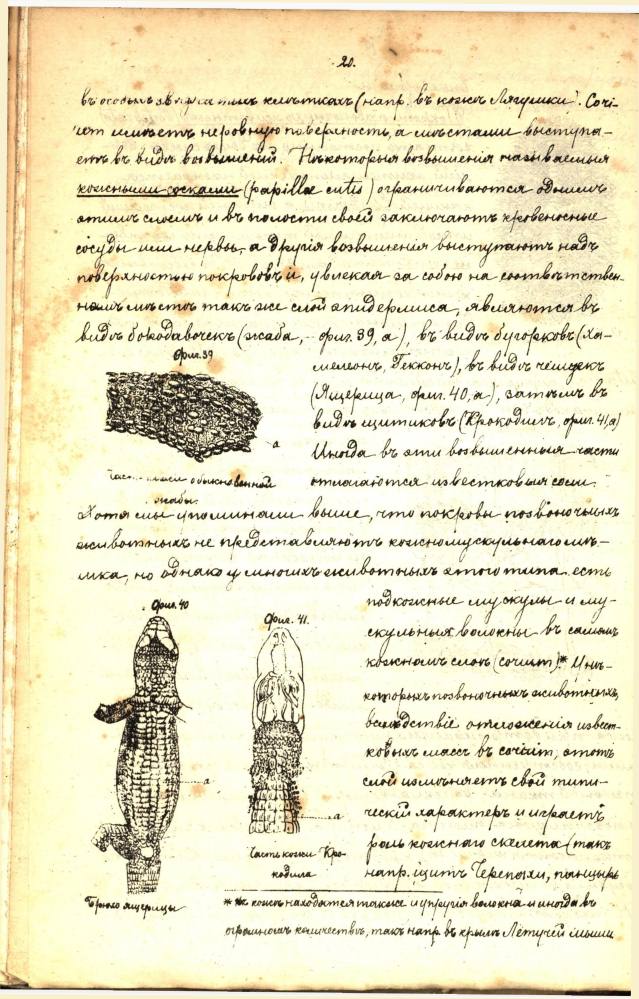 20.
въ особыхъ клѣткахъ (напр. въ кожѣ Лягушки). Сочі-
умъ имѣетъ неровную поверхность, а мѣстами выступа-
етъ въ видѣ возвышеній. Нѣкоторыя возвышенія называемыя
кожными сосками (papillæ cutis) ограничиваются однимъ
этимъ слоемъ и въ полости своей заключаютъ кровеносные
сосуды или нервы, а другія возвышенія выступаютъ надъ
поверхностью покрововъ и, увлекая за собою на соотвѣтствен-
номъ мѣстѣ такъ же слой эпидермиса, являются въ
видѣ бородавочекъ (жаба, фиг. 39, а), въ видѣ бугорковъ (Ха-
мелеонъ, Гекконъ), въ видѣ чешуекъ
(Ящерица, фиг. 40, а), затѣмъ въ
видѣ щитиковъ (Крокодилъ, фиг. 41, а)
Иногда въ эти возвышенныя части
отлагаются известковыя соли.
Фиг. 39
а
Часть кожи обыкновенной
жабы.
Хотя мы упоминали выше, что покровы позвоночныхъ
животныхъ не представляютъ кожномускульнаго мѣ-
шка, но однако у многихъ животныхъ этого типа есть
подкожные мускулы и му-
скульныя волокны въ самомъ
кожномъ слоѣ (corium)* У нѣ-
которыхъ позвоночныхъ животныхъ,
вслѣдствіе отложенія извест-
ковыхъ массъ въ corium, этотъ
слой измѣняетъ свой типи-
ческій характеръ и играетъ
роль кожнаго скелета (такъ
напр. щитъ Черепахи, панцырь
Фиг. 40
а
Брюхо ящерицы
Фиг. 41.
а
Часть кожи Кро-
кодила
* Въ кожѣ находятся также и упругія волокна и иногда въ
огромномъ количествѣ, такъ напр. въ крылѣ Летучей мыши